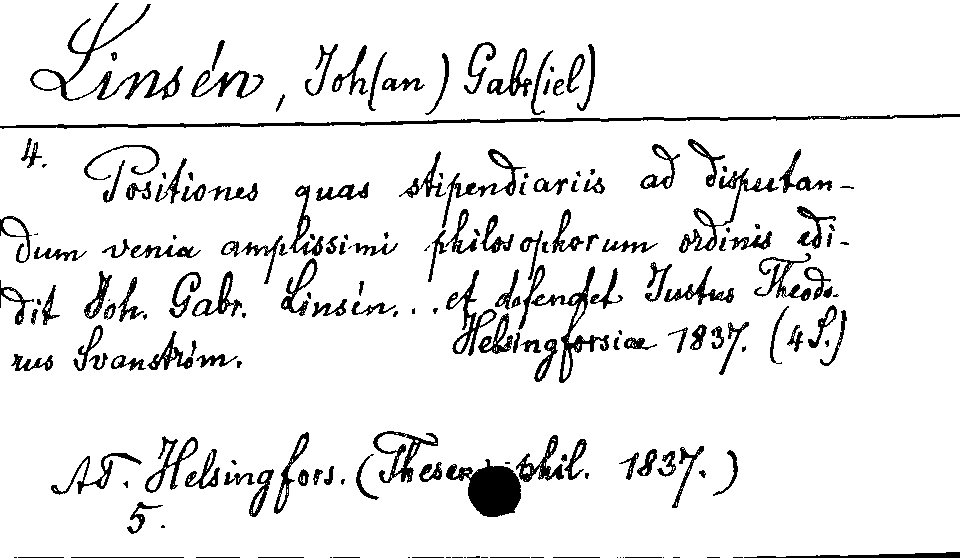 Linsén, Joh(an) Gabr(iel)
4.
Positiones quas stipendiariis ad disputan-
dum venia amplissimi philosophorum ordinis edi-
dit Joh. Gabr. Linsén... et defendet Justus Theodo-
rus Svanström. Helsingforsiae 1837. (4 S.)
AT. Helsingfors. (Thesen phil. 1837.)
5.